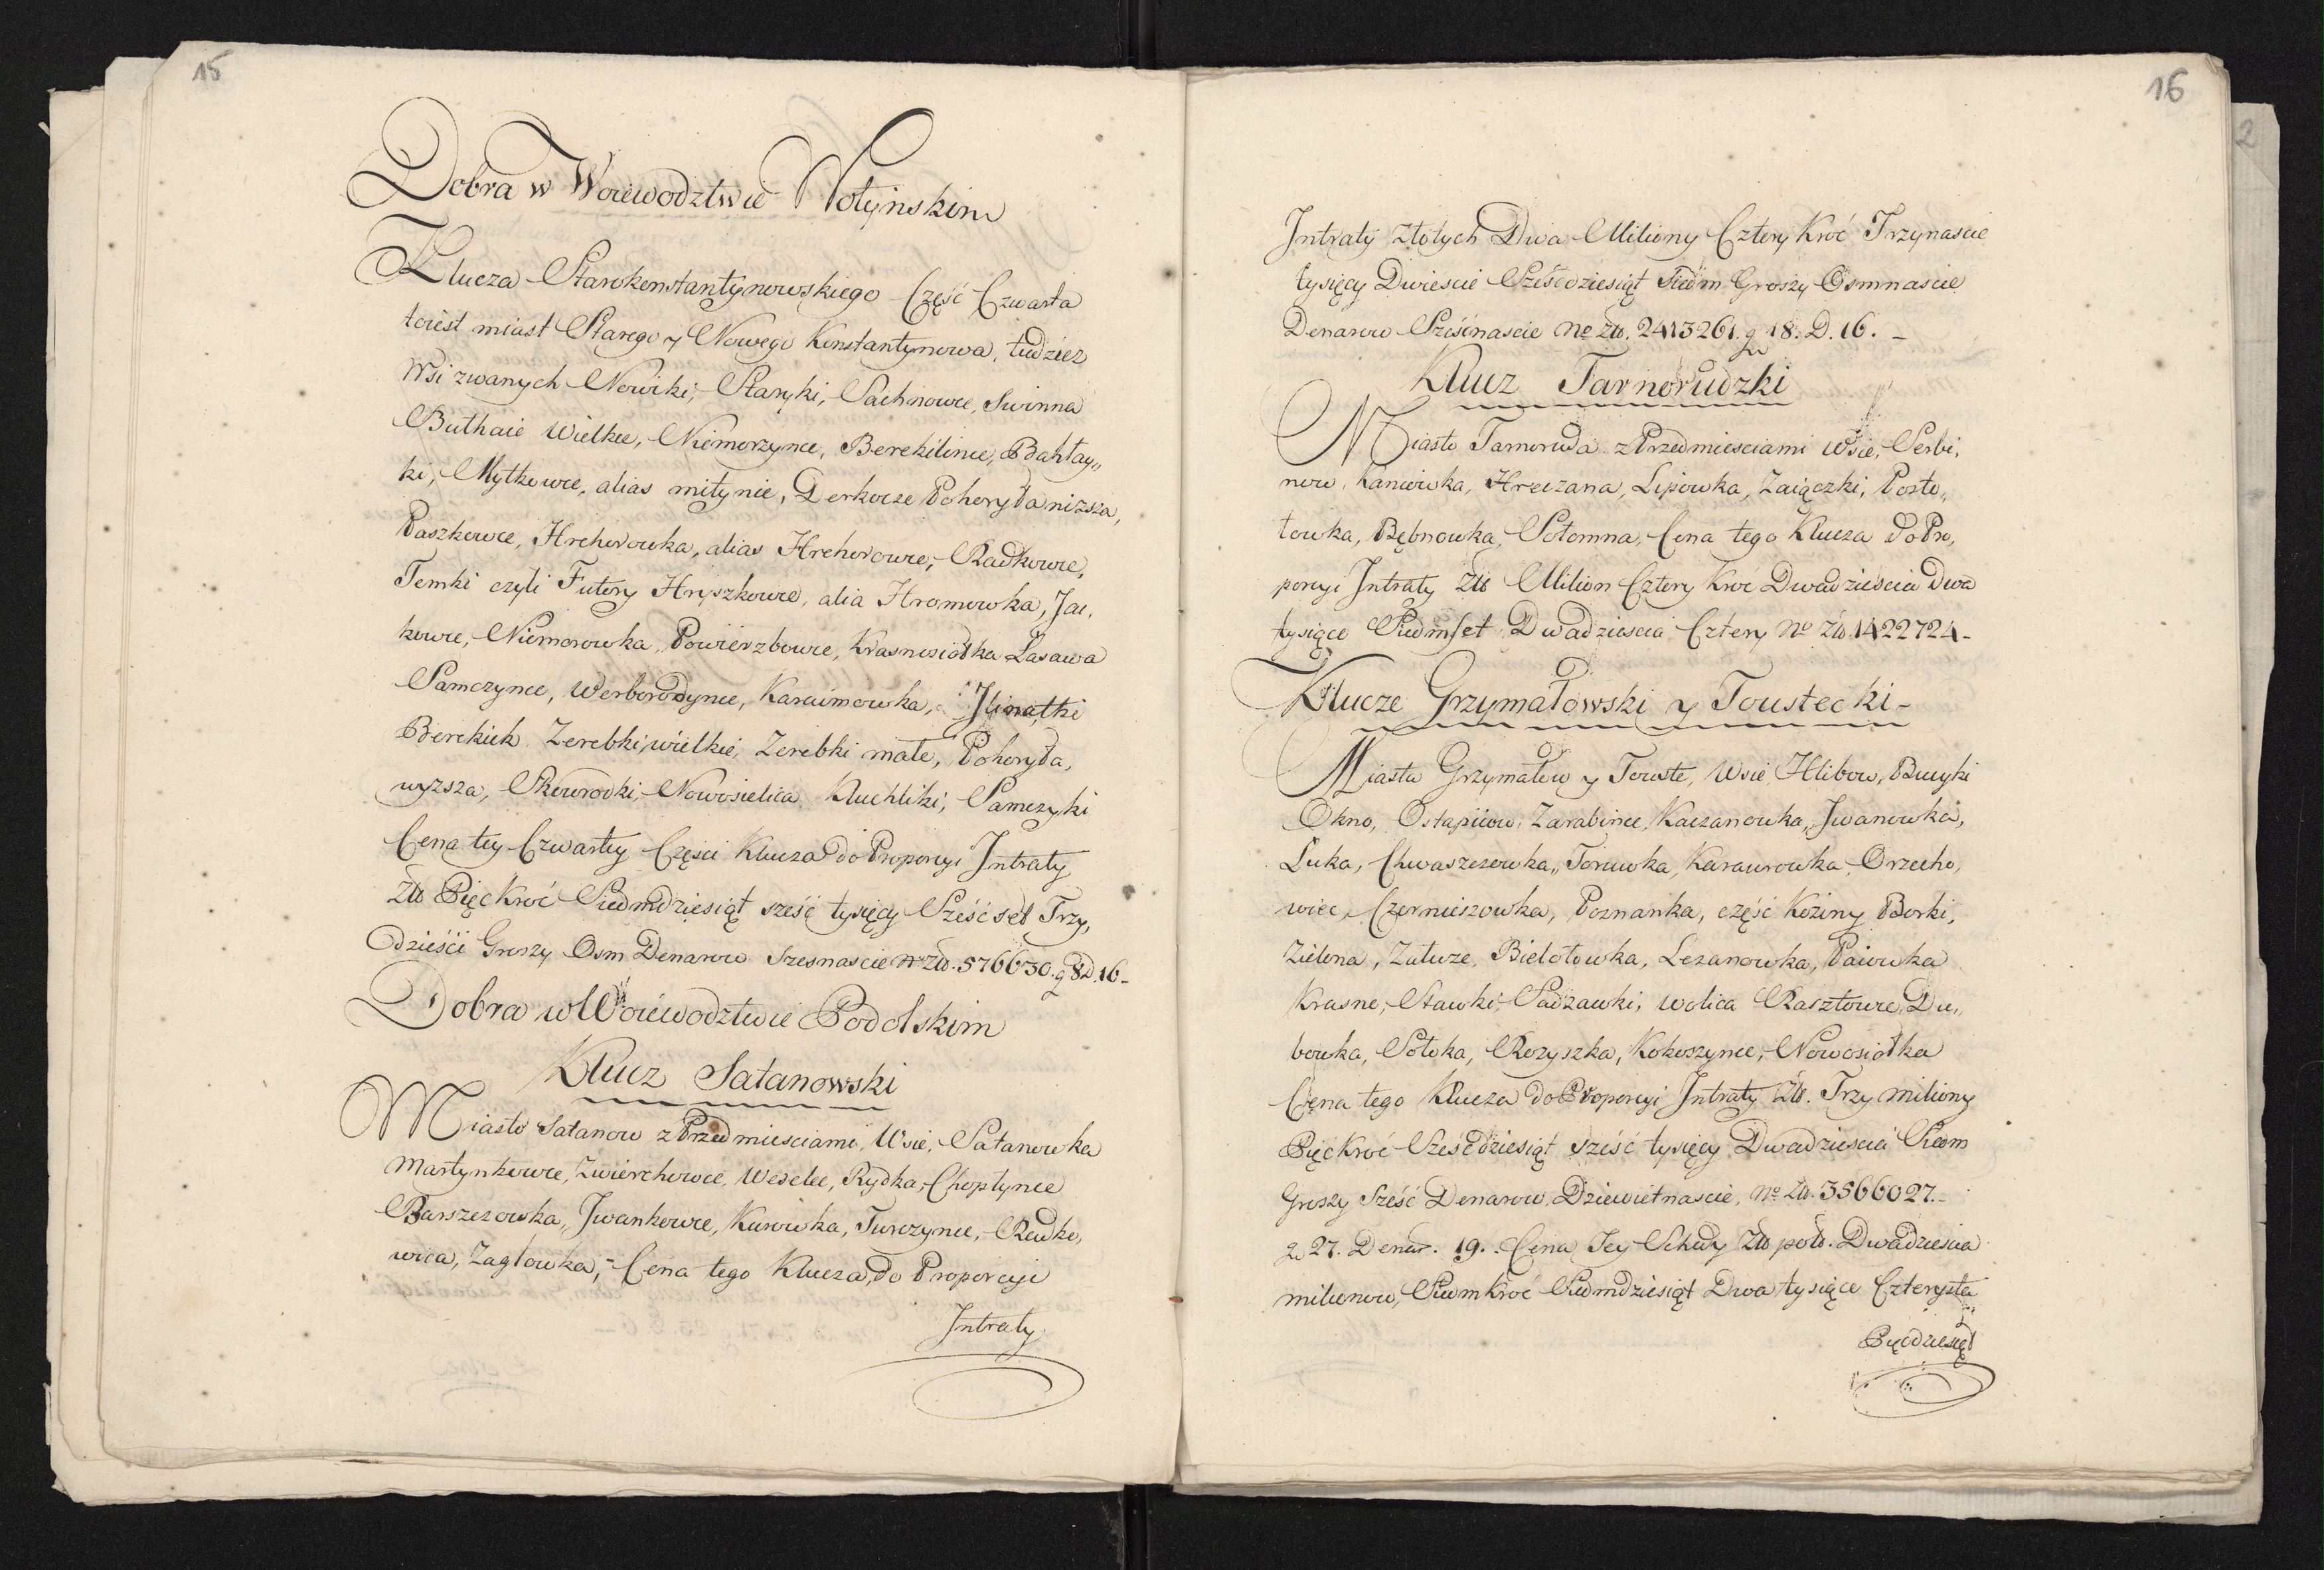 15
Dobra w Woiewodztwie Wołyńskim
Klucza Starokonstantynowskiego Część Czwarta
toiest miast Starego y Nowego Konstantynowa, tudziez
Wsi zwanych Nowiki, Staryki, Pachnowce, Swinna
Buthaie Wielkie, Niemorzynce, Berehilince, Bahłay„
ki, Mytkowce, alias mitynie, Derkacze Pohoryła nizsza,
Paszkowce, Hrehorowka, alias Hrehorowce, Radkowce,
Temki czyli Futory Hryszkowce, alia Hromowka, Jac„
kowce, Niemorowka, Powierzbowce, Krasnosiołka Łasawa
Samczynce, Werborodynce, Karaimowka, Ilinatki
Berekich Zerebki wielkie, Zerebki małe, Pohoryła,
wyzsza, Skowrodki, Nowosielica Kuchliki, Samczyki
Cena tey Czwartey Częsci Klucza do Proporcyi Intraty
Złł Pięćkroć Siedmdziesiąt sześć tysięcy Sześć set Trzy„
dzieści Groszy Osm Denarow Szesnascie No Złł. 576630. g 8 D. 16-
Dobra w Woiewodztwie Podolskim
Klucz Satanowski
Miasto Satanow z Przedmiesciami Wsie, Satanowka
Martynkowce, Zwierchowce, Weselec, Rydka, Choptynce
Barszczowka, Jwankowce, Kurowka, Turczynce, Redko„
wica, Zagłowka, - Cena tego Klucza, do Proporcyi
Intraty
16
2
Intraty złotych Dwa Miliony Cztery Kroć Trzynascie
tysięcy Dwiescie Sześcdziesiąt Siedm Groszy Osmnascie
Denarow Sześćnascie No Złł. 2413261. g 18. D. 16. -
Klucz Tarnorudzki
Miasto Tarnoruda z Przedmiesciami Wsie, Serbi„
now, Kaniowka, Hreczana, Lipowka, Zaiączki, Posto„
łowka, Bębnowka, Sołomna, Cena tego Klucza do Pro„
porcyi Intraty Złł Milion Cztery Kroć Dwadziescia Dwa
tysiące Siedmset Dwadziescia Cztery No Złł. 1422724-
Klucze Grzymałowski y Toustecki-
Miasta Grzymałow y Touste, Wsie Hlibow, Bucyki
Okno, Ostapiiow, Zarabince, Kaczanowka, Jwanowka,
Łuka, Chwaszczowka, Torowka, Karaurowka, Orzecho„
wiec, Czernieszowka, Poznanka, część Koziny Borki,
Zielona, Załuze, Biełołowka, Lezanowka, Paiowka
Krasne, Stawki, Sadzawki, Wolica Rasztowce, Du„
bowka, Sołoka, Rozyszka, Kokoszynce, Nowosiołka
Cena tego Klucza do Proporcyi Intraty Złł. Trzy miliony
Pięćkroć Sześćdziesiąt sześć tysięcy Dwadziescia Siedm
Groszy Sześć Denarow Dziewietnascie, No Złł. 3566027.-
g 27. Denar. 19. Cena Tey Schedy Złł pols. Dwadziescia
milionow, Siedmkroć Siedmdziesiąt Dwa tysiące Czterysta
Pięćdziesiąt